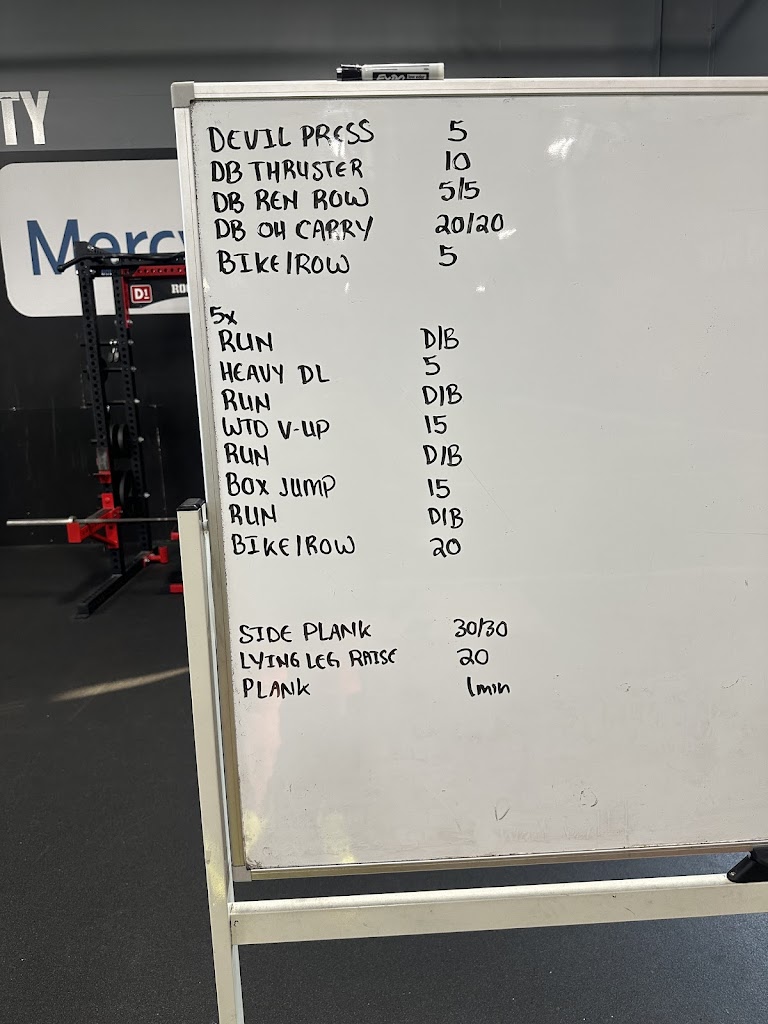 TY
Mercy
D1
RO
EXPO
DEVIL PRESS 5
DB THRUSTER 10
DB REN ROW 5/5
DB OH CARRY 20/20
BIKE/ROW 5
5x
RUN D/B
HEAVY DL 5
RUN D/B
WTD V-UP 15
RUN D/B
BOX JUMP 15
RUN D/B
BIKE/ROW 20
SIDE PLANK 30/30
LYING LEG RAISE 20
PLANK 1min